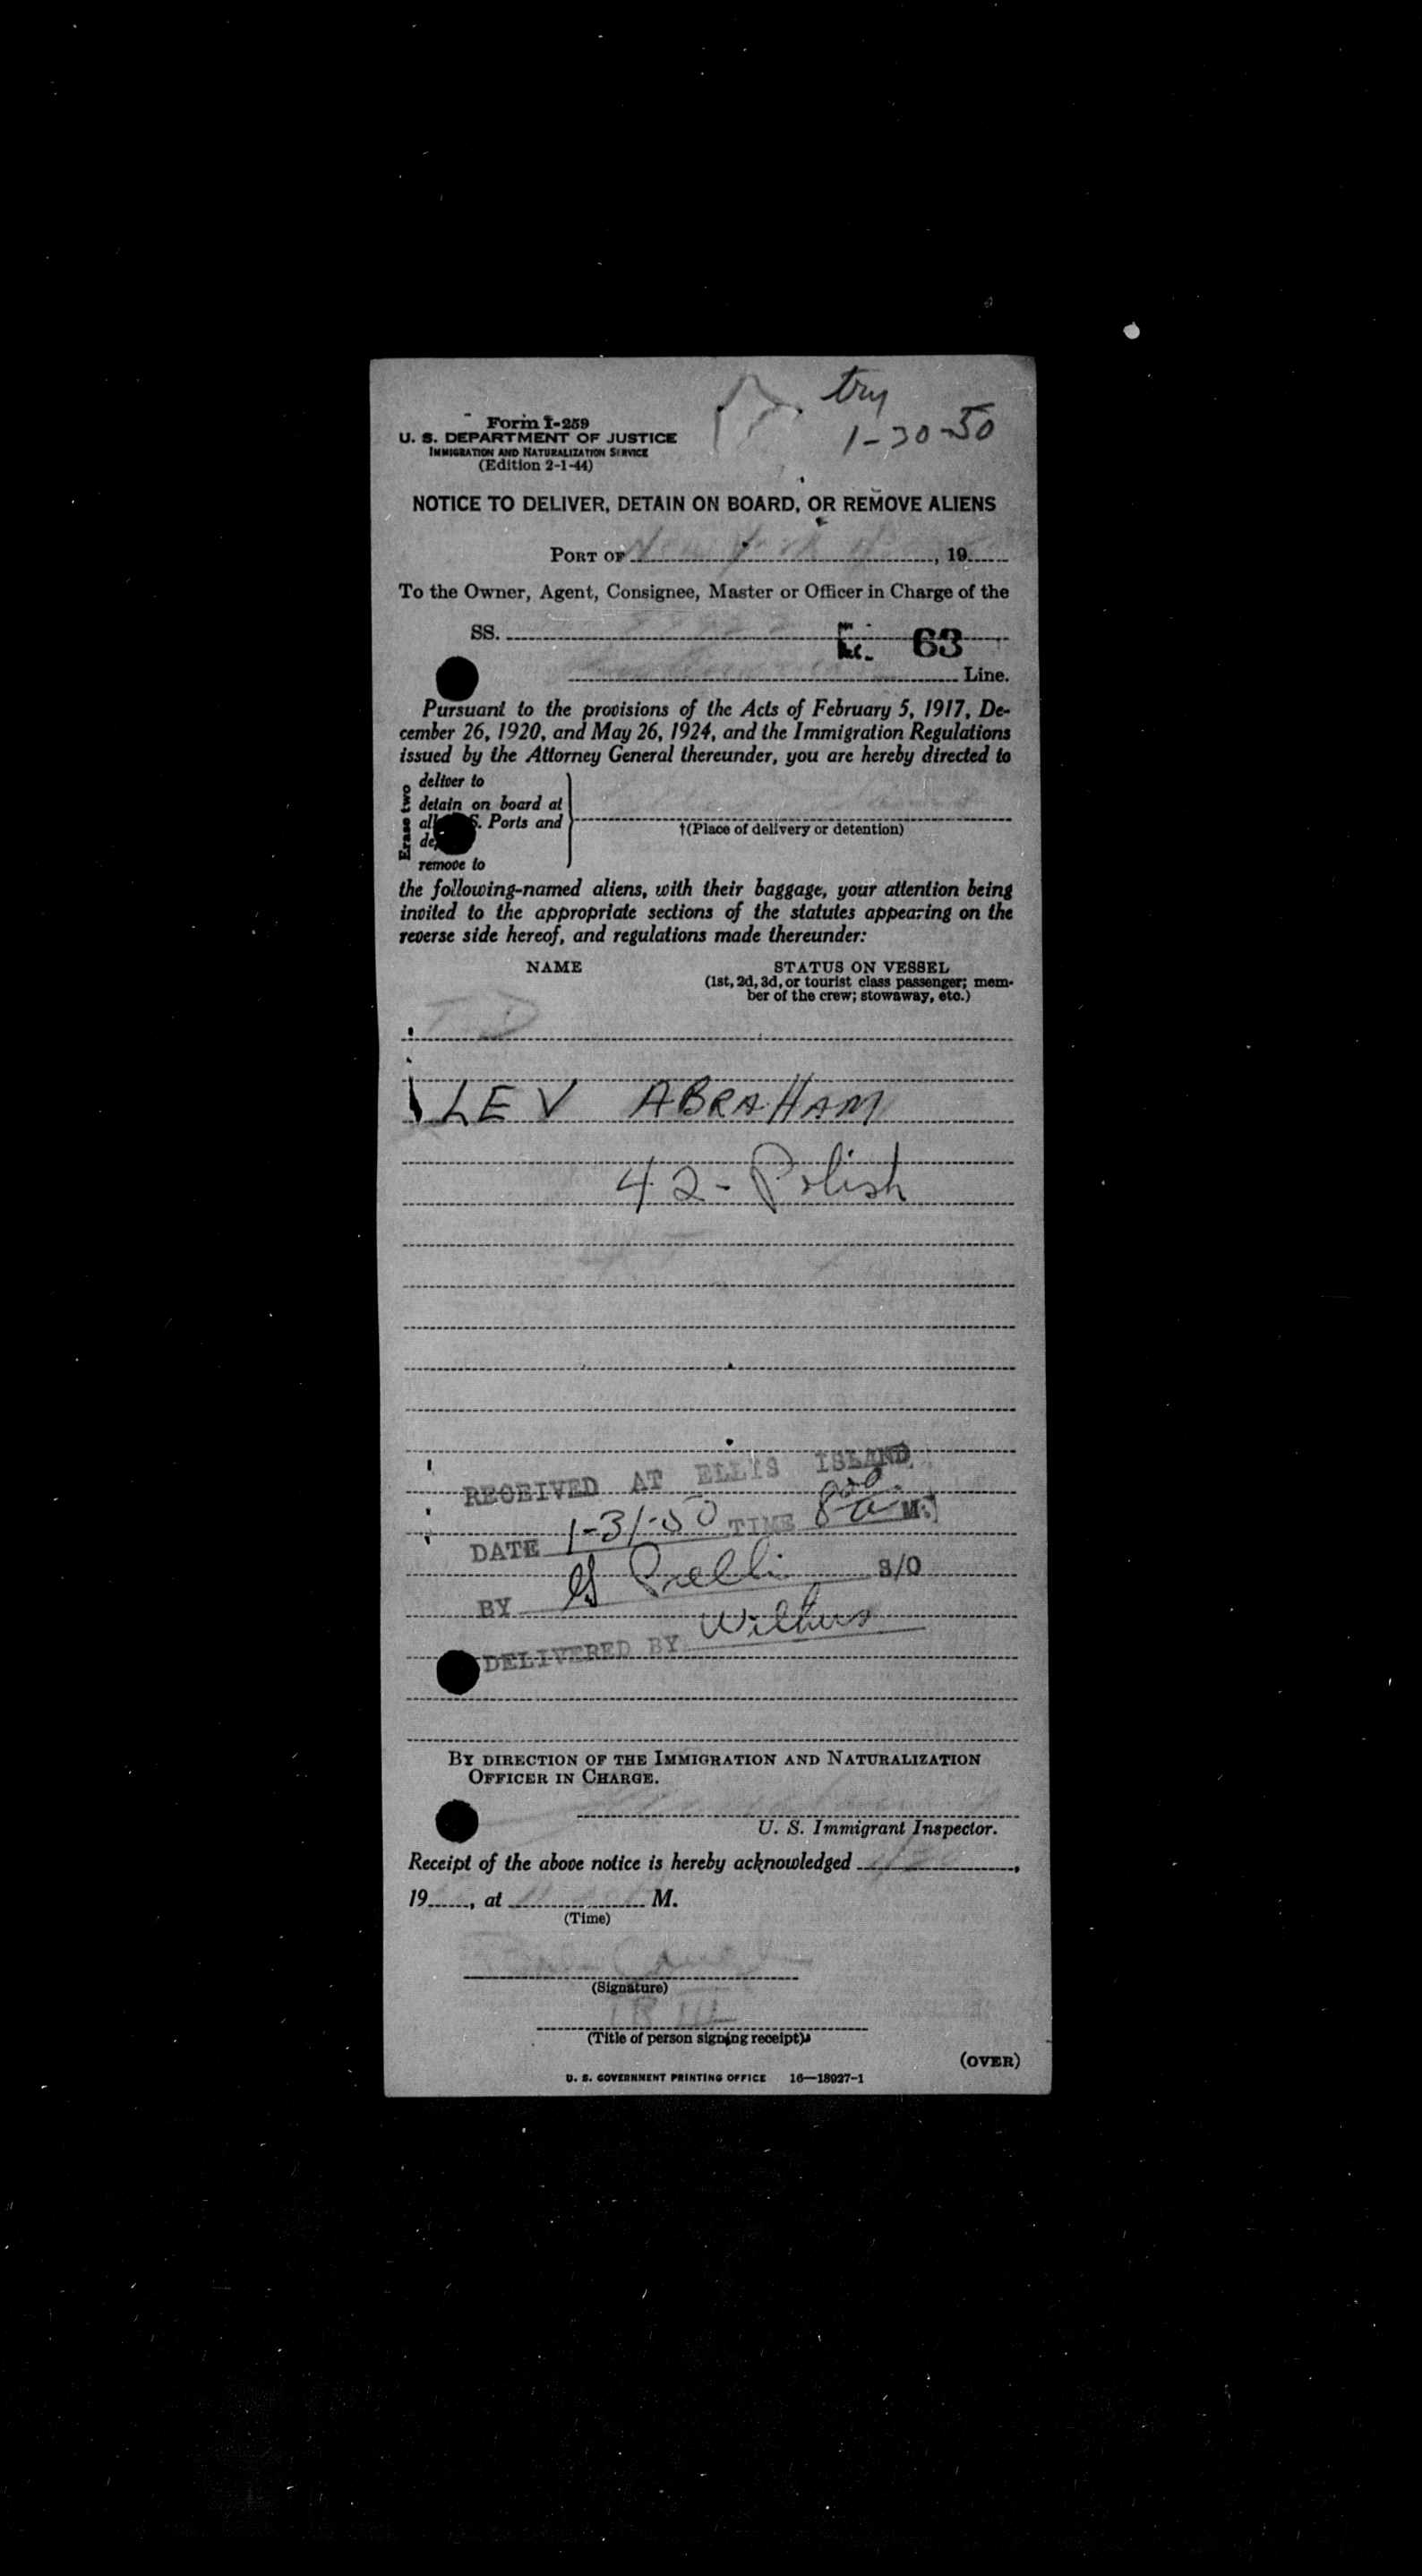 try
1-30-50
Form I-259
U. S. DEPARTMENT OF JUSTICE
IMMIGRATION AND NATURALIZATION SERVICE
(Edition 2-1-44)
NOTICE TO DELIVER, DETAIN ON BOARD, OR REMOVE ALIENS
PORT OF New York, 19
To the Owner, Agent, Consignee, Master or Officer in Charge of the
SS. 63
Line.
Pursuant to the provisions of the Acts of February 5, 1917, De-
cember 26, 1920, and May 26, 1924, and the Immigration Regulations
issued by the Attorney General thereunder, you are hereby directed to
Erase two
deliver to
detain on board at
all S. Ports and
de
remove to
†(Place of delivery or detention)
the following-named aliens, with their baggage, your attention being
invited to the appropriate sections of the statutes appearing on the
reverse side hereof, and regulations made thereunder:
NAME STATUS ON VESSEL
(1st, 2d, 3d, or tourist class passenger; mem-
ber of the crew; stowaway, etc.)
LEV ABRAHAM
42 - Polish
RECEIVED AT ELLIS ISLAND
DATE 1-31-50 TIME M.
BY S/O
DELIVERED BY
BY DIRECTION OF THE IMMIGRATION AND NATURALIZATION
OFFICER IN CHARGE.
U. S. Immigrant Inspector.
Receipt of the above notice is hereby acknowledged ,
19 , at M.
(Time)
(Signature)
(Title of person signing receipt)
(OVER)
U. S. GOVERNMENT PRINTING OFFICE 16—18027-1